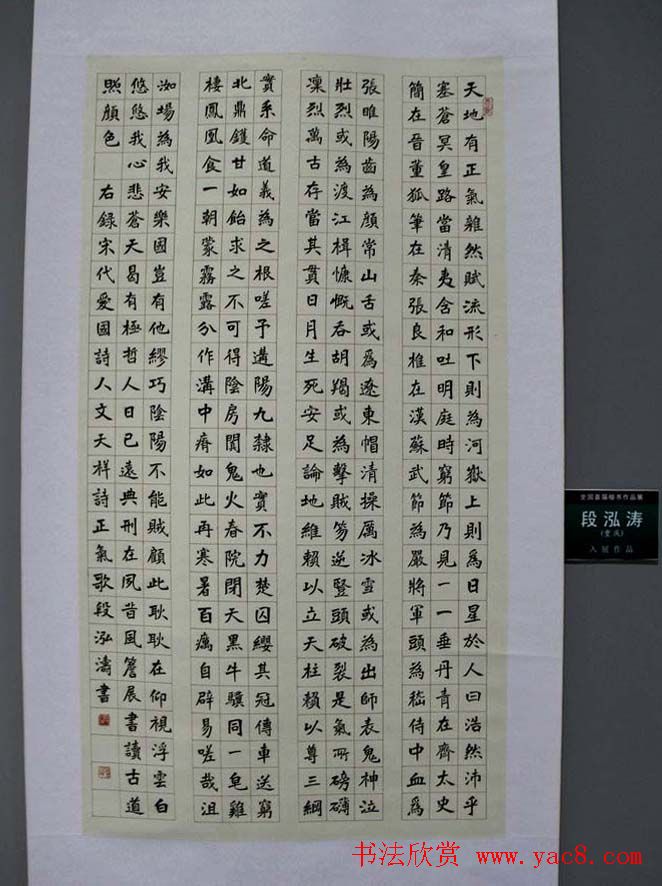 天地有正氣雜然賦流形下則為河嶽上則為日星於人曰浩然沛乎
塞蒼冥皇路當清夷含和吐明庭時窮節乃見一一垂丹青在齊太史
簡在晉董狐筆在秦張良椎在漢蘇武節為嚴將軍頭為嵇侍中血為
張睢陽齒為顏常山舌或為遼東帽清操厲冰雪或為出師表鬼神泣
壯烈或為渡江楫慷慨吞胡羯或為擊賊笏逆豎頭破裂是氣所磅礴
凜烈萬古存當其貫日月生死安足論地維賴以立天柱賴以尊三綱
實系命道義為之根嗟予遘陽九隸也實不力楚囚纓其冠傳車送窮
北鼎鑊甘如飴求之不可得陰房闃鬼火春院閉天黑牛驥同一皂雞
棲鳳凰食一朝蒙霧露分作溝中瘠如此再寒暑百癘自辟易嗟哉沮
洳場為我安樂國豈有他繆巧陰陽不能賊顧此耿耿在仰視浮雲白
悠悠我心悲蒼天曷有極哲人日已遠典刑在夙昔風簷展書讀古道
照顏色 右錄宋代愛國詩人文天祥詩正氣歌段泓濤書
全国首届楷书作品展
段泓涛
(重庆)
入展作品
书法欣赏 www.yac8.com